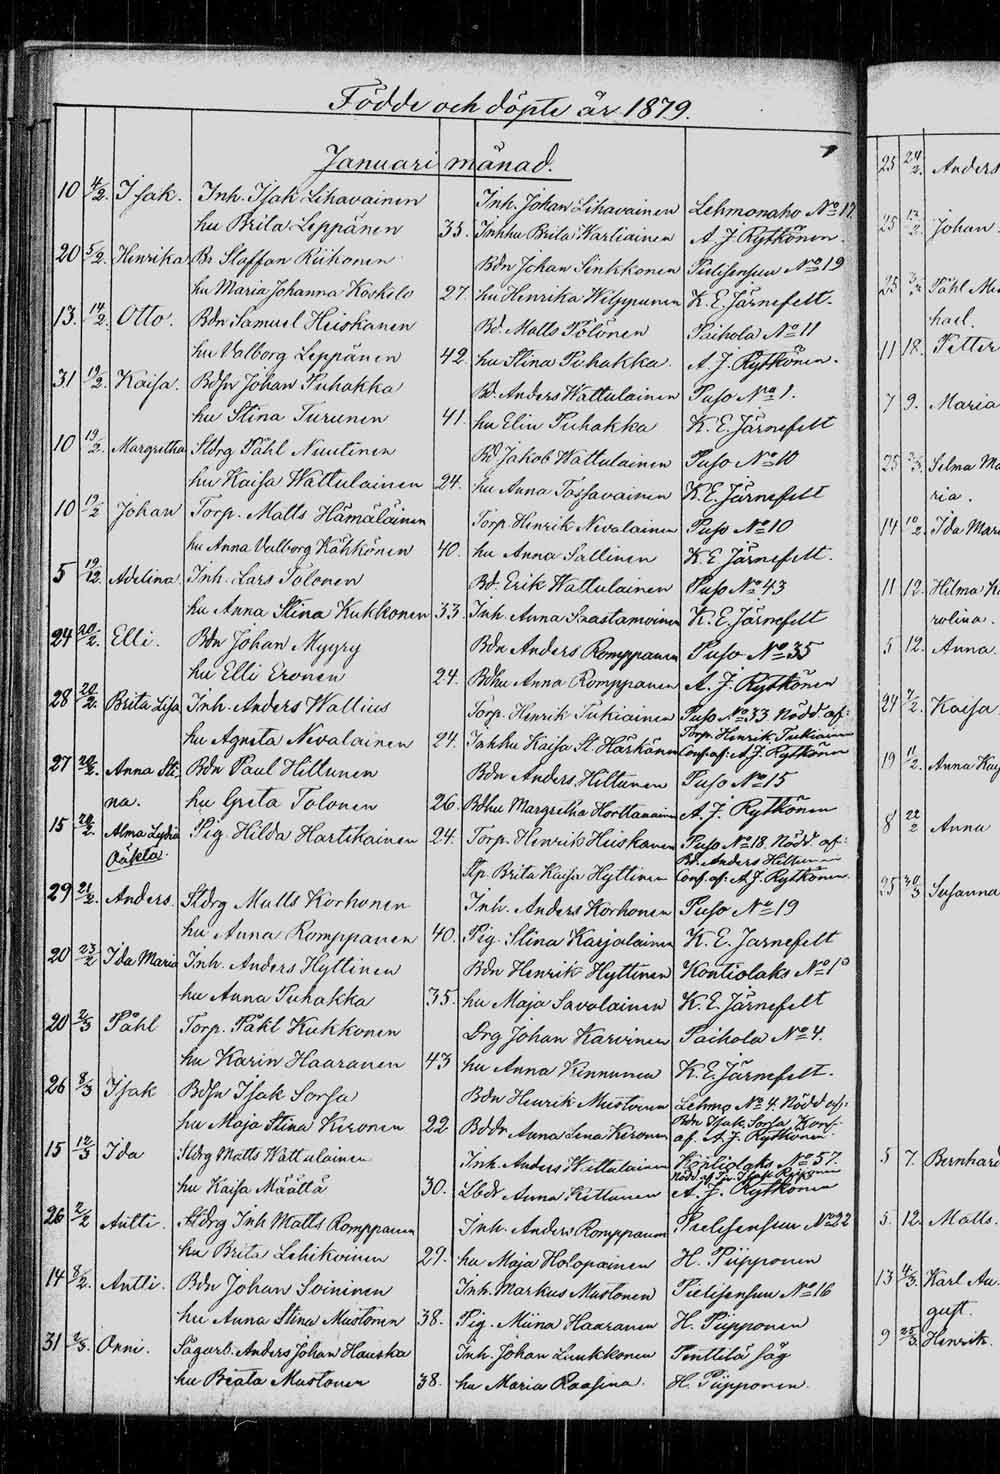 Födde och döpte år 1879.
Januari månad.
10 4/2. Isak. Inh. Isak Lihavainen Inh. Johan Lihavainen Lehmonaho No 12.
hu Brita Leppänen 35. Inhhu Brita Karliainen A. J. Rytkönen.
20 5/2. Henrika Br Staffan Riikonen Bdn Johan Sinkkonen Pielisensuu No 19
hu Maria Johanna Koskelo 27. hu Henrika Wilppunen K. E. Järnefelt.
13. 14/2. Otto. Bdn Samuel Heiskanen Bd. Matts Tolonen Paihola No 11
hu Valborg Leppänen 42. hu Stina Puhakka. A. J. Rytkönen.
31 19/2. Kaisa. Bdsn Johan Puhakka Bd. Anders Wattulainen Puso No 1.
hu Stina Turunen 41. hu Elin Puhakka K. E. Järnefelt
10 19/2. Margretha Stdrg Påhl Nuutinen Bd Jakob Wattulainen Puso No 10
hu Kaisa Wattulainen 24. hu Anna Tossavainen K. E. Järnefelt
10 19/2 Johan Torp. Matts Hämäläinen Torp. Henrik Nevalainen Puso No 10
hu Anna Valborg Kähkönen 40. hu Anna Sallinen K. E. Järnefelt.
5 19/12. Adelina. Inh. Lars Tolonen Bd. Erik Wattulainen Puso No 43
hu Anna Stina Kukkonen 33. Inh. Anna Saastamoinen K. E. Järnefelt
24 20/2. Elli. Bdn Johan Myyry Bdn Anders Romppanen Puso No 35
hu Elli Eronen 24. Bdhu Anna Romppanen A. J. Rytkönen
28 20/2. Brita Lisa Inh. Anders Wallius Torp. Henrik Tukiainen Puso No 33 Nödd. af:
Torp. Henrik Tukiainen
hu Agneta Nevalainen 24. Inhhu Kaisa St. Härkönen Conf. af: A. J. Rytkönen
27 20/2. Anna Sti- Bdn Paul Hiltunen Bdn Anders Hiltunen Puso No 15
na. hu Greta Tolonen 26. Bdhu Margretha Horttanainen A. J. Rytkönen
15 20/2. Alma Lydia Pig. Hilda Hartikainen 24. Torp. Henrik Heiskanen Puso No 18. Nödd. af:
Oäkta. Bd. Anders Hiltunen
Stp. Brita Kaisa Hyttinen Conf. af: A. J. Rytkönen.
29 21/2. Anders. Stdrg Matts Korhonen Inh. Anders Korhonen Puso No 19
hu Anna Romppanen 40. Pig. Stina Karjalainen K. E. Jarnefelt
20 23/2 Ida Maria Inh. Anders Hyttinen Bdn Henrik Hyttinen Kontiolaks No 10
hu Anna Puhakka 35. hu Maja Savolainen K. E. Järnefelt
20 2/3 Påhl Torp. Påhl Kukkonen Drg Johan Karvinen Paihola No 4.
hu Karin Haaranen 43 hu Anna Kinnunen K. E. Järnefelt.
26 8/3 Isak Bdsn Isak Sorsa Bdn Henrik Mustonen Lehmo No 4. Nödd af:
Bdn Isak Sorsa Konf-
hu Maja Stina Kironen 22 Bddr Anna Lena Kironen af. A. J. Rytkönen.
15 12/3 Ida Stdrg Matts Wattulainen Inh. Anders Wattulainen Kontiolaks No 57.
hu Kaisa Määttä 30. Lbdr Anna Kettunen A. J. Rytkönen
26 2/2 Antti. Stdrg Inh Matts Romppanen Inh. Anders Romppanen Pielisensuu No 22
hu Brita Lehikoinen 29. hu Maja Holopainen H. Piipponen
14 8/2. Antti. Bdn Johan Soininen Inh. Markus Mustonen Pielisensuu No 16
hu Anna Stina Mustonen 38. Pig. Miina Haaranen H. Piipponen
31 2/3. Onni. Sågarb. Anders Johan Hauska Inh. Johan Luukkonen Penttilä såg
hu Beata Mustonen 38. hu Maria Raasina. H. Piipponen.
25 24/2. Anders
25 Johan.
25 Påhl Mi-
hael.
11 18. Petter
7 9. Maria
25 Selma Ma
ria.
14 10/2. Ida Mari
11 12. Hilma Ka
rolina.
5 12. Anna.
24 7/2. Kaisa
19 11/2. Anna Kaj
8 22/2 Anna
25 30/3 Susanna
5 7. Bernhard
5. 12. Matts.
13 4/3. Karl Au-
gust.
9 25/3. Henrik.